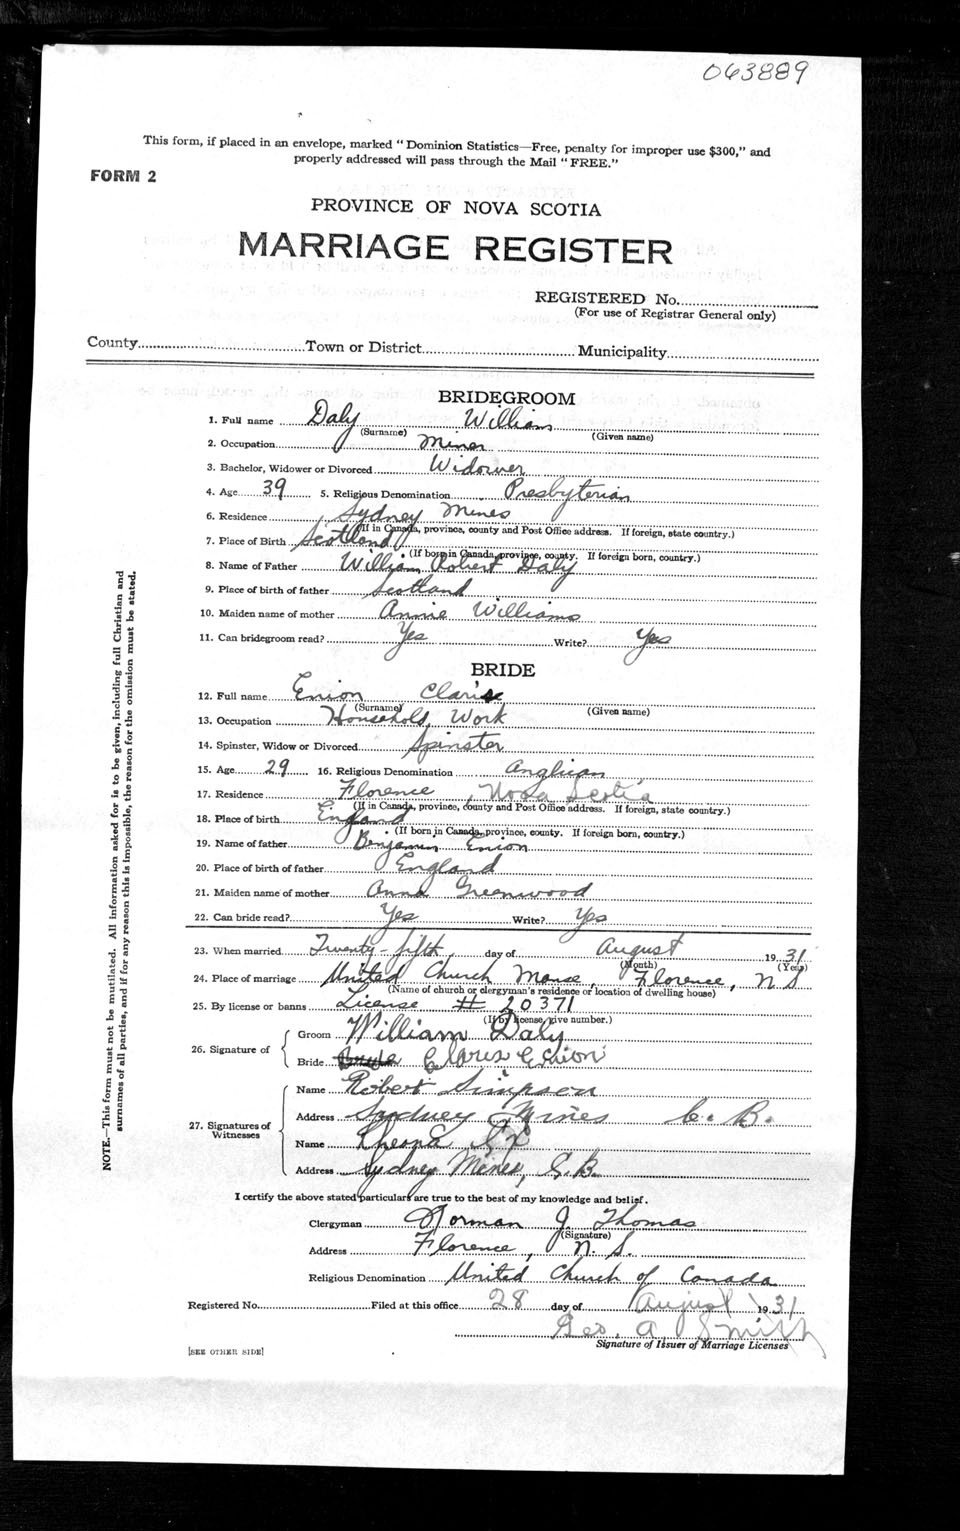 063889
This form, if placed in an envelope, marked "Dominion Statistics—Free, penalty for improper use $300," and
properly addressed will pass through the Mail "FREE."
FORM 2
PROVINCE OF NOVA SCOTIA
MARRIAGE REGISTER
REGISTERED No.
(For use of Registrar General only)
County Town or District Municipality
BRIDEGROOM
1. Full name Daly William
(Surname) (Given name)
2. Occupation Miner
3. Bachelor, Widower or Divorced Widower
4. Age 39 5. Religious Denomination Presbyterian
6. Residence Sydney Mines
(If in Canada, province, county and Post Office address. If foreign, state country.)
7. Place of Birth Scotland
(If born in Canada, province, county. If foreign born, country.)
8. Name of Father William Robert Daly
9. Place of birth of father Scotland
10. Maiden name of mother Annie Williams
11. Can bridegroom read? Yes Write? Yes
BRIDE
12. Full name Enion Claris
(Surname) (Given name)
13. Occupation Household Work
14. Spinster, Widow or Divorced Spinster
15. Age 29 16. Religious Denomination Anglican
17. Residence Florence, Nova Scotia
(If in Canada, province, county and Post Office address. If foreign, state country.)
18. Place of birth England
(If born in Canada, province, county. If foreign born, country.)
19. Name of father Benjamin Enion
20. Place of birth of father England
21. Maiden name of mother Anna Greenwood
22. Can bride read? Yes Write? Yes
23. When married Twenty-fifth, day of August 1931
(Month) (Year)
24. Place of marriage United Church Manse, Florence, N S
(Name of church or clergyman's residence or location of dwelling house)
25. By license or banns License # 20371
(If by license, give number.)
26. Signature of
Groom William Daly
Bride Claris Enion
27. Signatures of Witnesses
Name Robert Simpson
Address Sydney Mines C. B.
Name
Address Sydney Mines, C.B.
I certify the above stated particulars are true to the best of my knowledge and belief.
Clergyman Norman J. Thomas
(Signature)
Address Florence, N. S.
Religious Denomination United Church of Canada
Registered No. Filed at this office 28 day of August 1931
Geo. A Smith
Signature of Issuer of Marriage Licenses
[SEE OTHER SIDE]
NOTE.—This form must not be mutilated. All information asked for is to be given, including full Christian and
surnames of all parties, and if for any reason this is impossible, the reason for the omission must be stated.